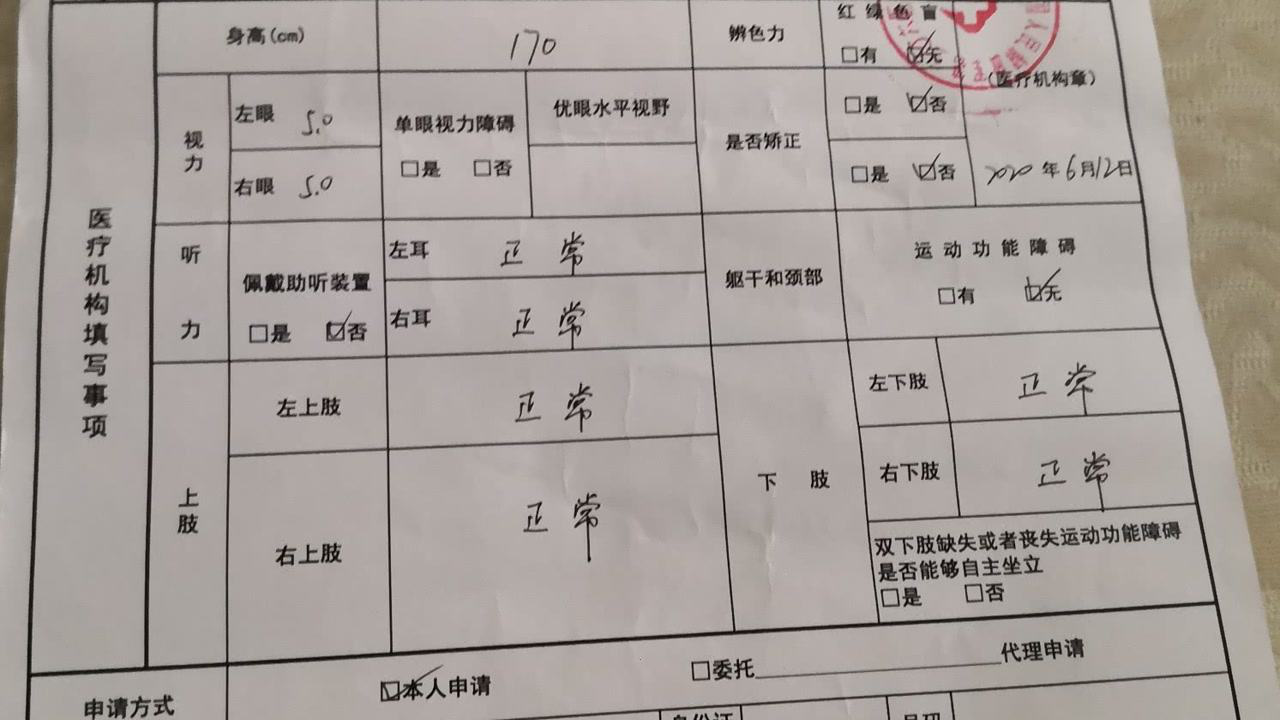 身高(cm) 170 辨色力 红绿色盲
□有 ☑无
(医疗机构章)
视力 左眼 5.0 单眼视力障碍 优眼水平视野 是否矫正 □是 ☑否
□是 □否
右眼 5.0 □是 ☑否 2020年6月12日
医疗机构填写事项
听力 佩戴助听装置 左耳 正常 躯干和颈部 运动功能障碍
□是 ☑否 右耳 正常 □有 ☑无
上肢 左上肢 正常 下肢 左下肢 正常
右上肢 正常 右下肢 正常
双下肢缺失或者丧失运动功能障碍
是否能够自主坐立
□是 □否
申请方式 ☑本人申请 □委托 代理申请